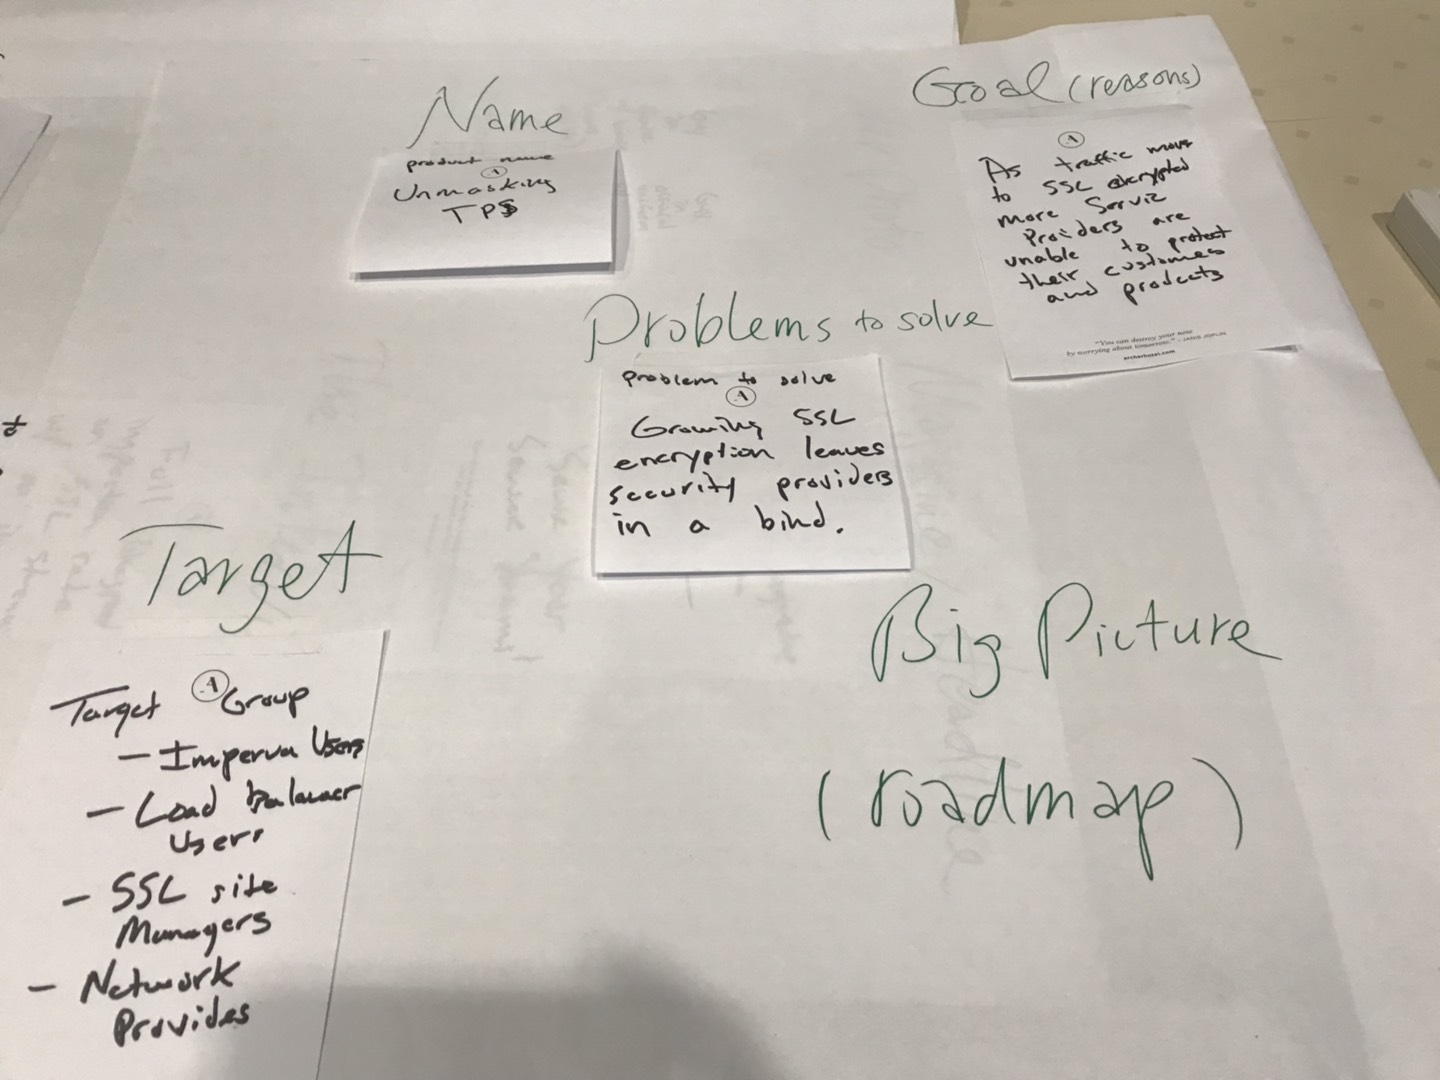 Name
product name
A
Unmasking
TPS
Goal (reasons)
A
As traffic moves
to SSL encrypted
more Service
Providers are
unable to protect
their customes
and products
"You can destroy your now
by worrying about tomorrow." - JANIS JOPLIN
archerhotel.com
Problems to solve
problem to solve
A
Growing SSL
encryption leaves
security providers
in a bind.
Target
Target A Group
- Imperva Users
- Load balancer
Users
- SSL site
Managers
- Network
Provides
Big Picture
(roadmap)